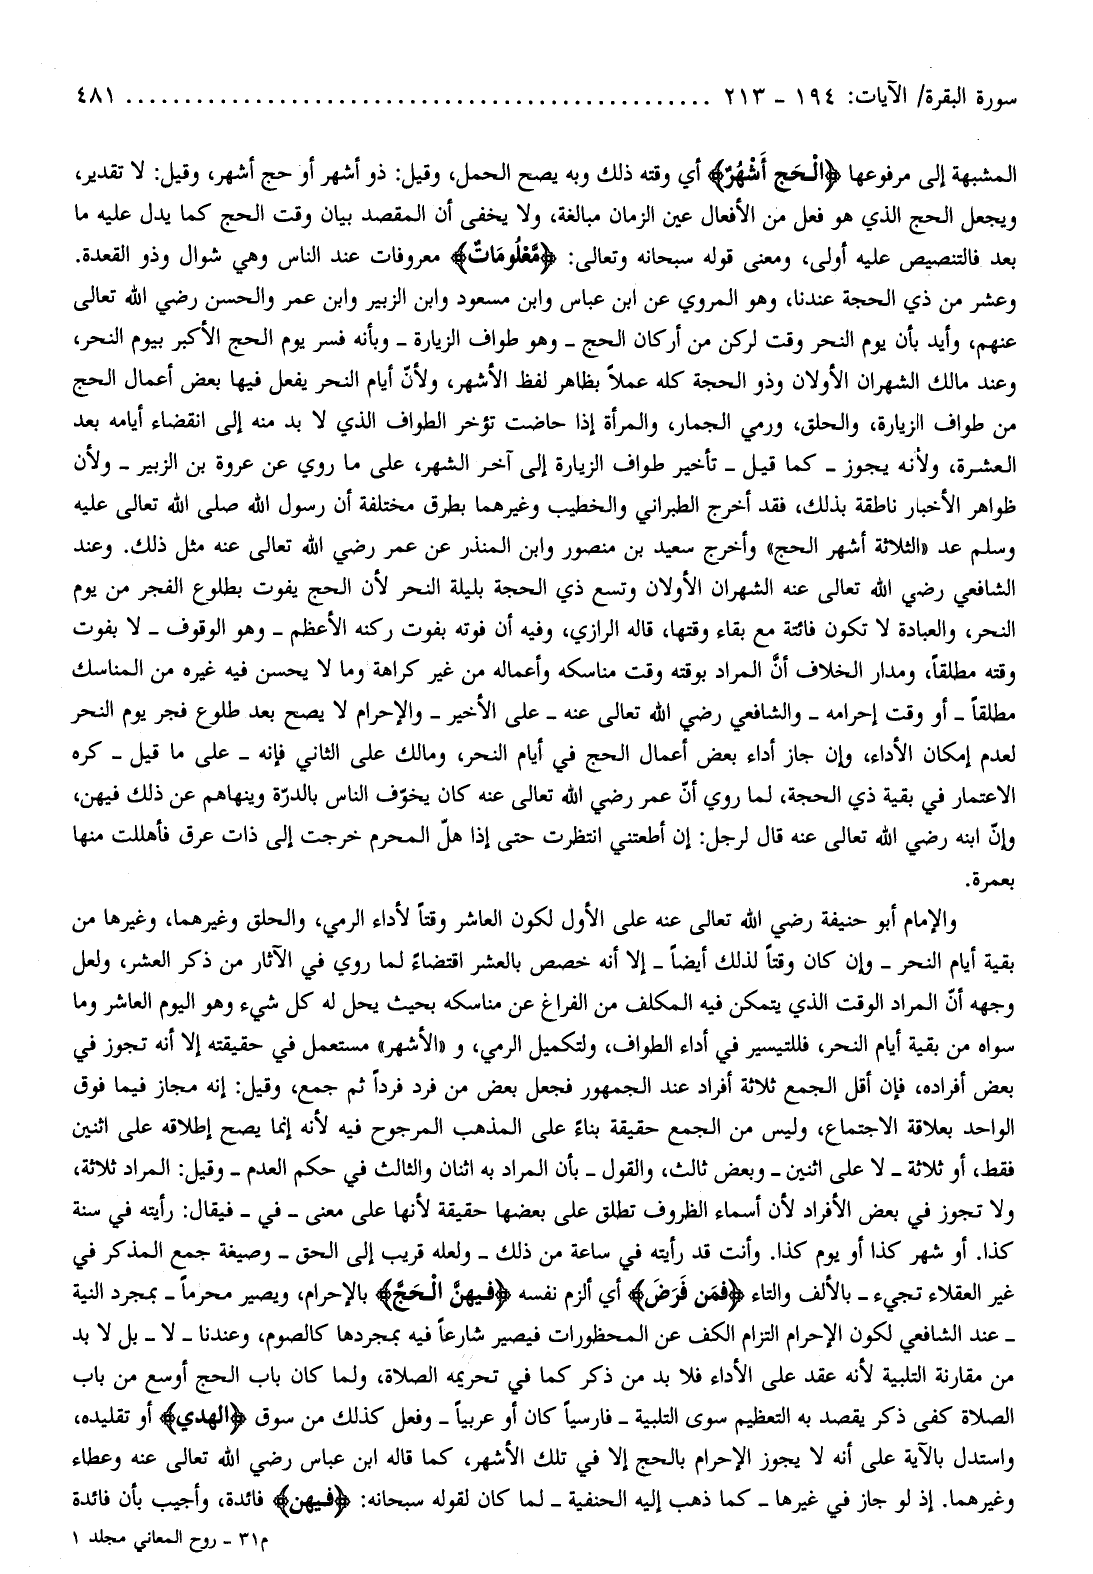 سورة البقرة/ الآيات: ١٩٤ ـ ٢١٣ ................................................ ٤٨١
المشبهة إلى مرفوعها ﴿الْحَج أَشْهُرٌ﴾ أي وقته ذلك وبه يصح الحمل، وقيل: ذو أشهر أو حج أشهر، وقيل: لا تقدير،
ويجعل الحج الذي هو فعل من الأفعال عين الزمان مبالغة، ولا يخفى أن المقصد بيان وقت الحج كما يدل عليه ما
بعد فالتنصيص عليه أولى، ومعنى قوله سبحانه وتعالى: ﴿مَّعْلُومَاتٌ﴾ معروفات عند الناس وهي شوال وذو القعدة.
وعشر من ذي الحجة عندنا، وهو المروي عن ابن عباس وابن مسعود وابن الزبير وابن عمر والحسن رضي الله تعالى
عنهم، وأيد بأن يوم النحر وقت لركن من أركان الحج ـ وهو طواف الزيارة ـ وبأنه فسر يوم الحج الأكبر بيوم النحر،
وعند مالك الشهران الأولان وذو الحجة كله عملاً بظاهر لفظ الأشهر، ولأنّ أيام النحر يفعل فيها بعض أعمال الحج
من طواف الزيارة، والحلق، ورمي الجمار، والمرأة إذا حاضت تؤخر الطواف الذي لا بد منه إلى انقضاء أيامه بعد
العشرة، ولأنه يجوز ـ كما قيل ـ تأخير طواف الزيارة إلى آخر الشهر، على ما روي عن عروة بن الزبير ـ ولأن
ظواهر الأخبار ناطقة بذلك، فقد أخرج الطبراني والخطيب وغيرهما بطرق مختلفة أن رسول الله صلى الله تعالى عليه
وسلم عد «الثلاثة أشهر الحج» وأخرج سعيد بن منصور وابن المنذر عن عمر رضي الله تعالى عنه مثل ذلك. وعند
الشافعي رضي الله تعالى عنه الشهران الأولان وتسع ذي الحجة بليلة النحر لأن الحج يفوت بطلوع الفجر من يوم
النحر، والعبادة لا تكون فائتة مع بقاء وقتها، قاله الرازي، وفيه أن فوته بفوت ركنه الأعظم ـ وهو الوقوف ـ لا بفوت
وقته مطلقاً، ومدار الخلاف أنَّ المراد بوقته وقت مناسكه وأعماله من غير كراهة وما لا يحسن فيه غيره من المناسك
مطلقاً ـ أو وقت إحرامه ـ والشافعي رضي الله تعالى عنه ـ على الأخير ـ والإحرام لا يصح بعد طلوع فجر يوم النحر
لعدم إمكان الأداء، وإن جاز أداء بعض أعمال الحج في أيام النحر، ومالك على الثاني فإنه ـ على ما قيل ـ كره
الاعتمار في بقية ذي الحجة، لما روي أنّ عمر رضي الله تعالى عنه كان يخوّف الناس بالدرّة وينهاهم عن ذلك فيهن،
وإنّ ابنه رضي الله تعالى عنه قال لرجل: إن أطعتني انتظرت حتى إذا هلّ المحرم خرجت إلى ذات عرق فأهللت منها
بعمرة.
والإمام أبو حنيفة رضي الله تعالى عنه على الأول لكون العاشر وقتاً لأداء الرمي، والحلق وغيرهما، وغيرها من
بقية أيام النحر ـ وإن كان وقتاً لذلك أيضاً ـ إلا أنه خصص بالعشر اقتضاءً لما روي في الآثار من ذكر العشر، ولعل
وجهه أنّ المراد الوقت الذي يتمكن فيه المكلف من الفراغ عن مناسكه بحيث يحل له كل شيء وهو اليوم العاشر وما
سواه من بقية أيام النحر، فللتيسير في أداء الطواف، ولتكميل الرمي، و «الأشهر» مستعمل في حقيقته إلا أنه تجوز في
بعض أفراده، فإن أقل الجمع ثلاثة أفراد عند الجمهور فجعل بعض من فرد فرداً ثم جمع، وقيل: إنه مجاز فيما فوق
الواحد بعلاقة الاجتماع، وليس من الجمع حقيقة بناءً على المذهب المرجوح فيه لأنه إنما يصح إطلاقه على اثنين
فقط، أو ثلاثة ـ لا على اثنين ـ وبعض ثالث، والقول ـ بأن المراد به اثنان والثالث في حكم العدم ـ وقيل: المراد ثلاثة،
ولا تجوز في بعض الأفراد لأن أسماء الظروف تطلق على بعضها حقيقة لأنها على معنى ـ في ـ فيقال: رأيته في سنة
كذا. أو شهر كذا أو يوم كذا. وأنت قد رأيته في ساعة من ذلك ـ ولعله قريب إلى الحق ـ وصيغة جمع المذكر في
غير العقلاء تجيء ـ بالألف والتاء ﴿فَمَن فَرَضَ﴾ أي ألزم نفسه ﴿فيهنَّ الْحَجَّ﴾ بالإحرام، ويصير محرماً ـ بمجرد النية
ـ عند الشافعي لكون الإحرام التزام الكف عن المحظورات فيصير شارعاً فيه بمجردها كالصوم، وعندنا ـ لا ـ بل لا بد
من مقارنة التلبية لأنه عقد على الأداء فلا بد من ذكر كما في تحريمه الصلاة، ولما كان باب الحج أوسع من باب
الصلاة كفى ذكر يقصد به التعظيم سوى التلبية ـ فارسياً كان أو عربياً ـ وفعل كذلك من سوق ﴿الهدي﴾ أو تقليده،
واستدل بالآية على أنه لا يجوز الإحرام بالحج إلا في تلك الأشهر، كما قاله ابن عباس رضي الله تعالى عنه وعطاء
وغيرهما. إذ لو جاز في غيرها ـ كما ذهب إليه الحنفية ـ لما كان لقوله سبحانه: ﴿فيهن﴾ فائدة، وأجيب بأن فائدة
م٣١ ـ روح المعاني مجلد ١